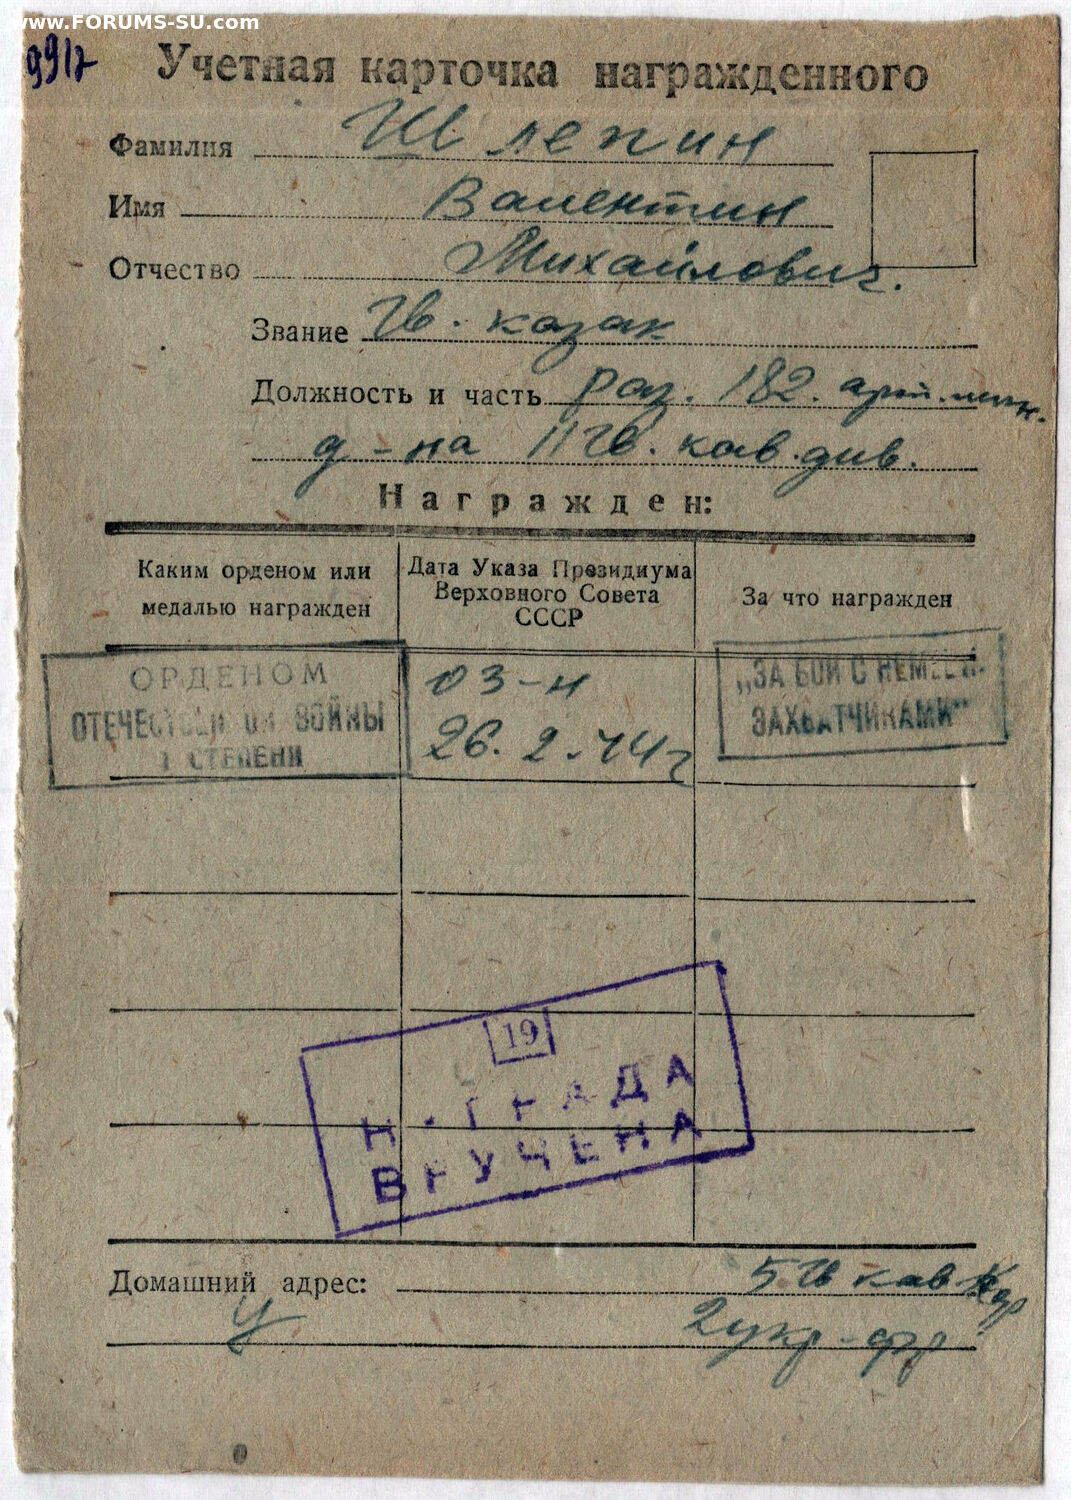 www.FORUMS-SU.com
9917
Учетная карточка награжденного
Фамилия Шлепин
Имя Валентин
Отчество Михайлович.
Звание Гв. казак
Должность и часть раз. 182. арт. мин.
д-на 11 гв. кав. див.
Награжден:
Каким орденом или медалью награжден
Дата Указа Президиума Верховного Совета СССР
За что награжден
ОРДЕНОМ
ОТЕЧЕСТВЕННОЙ ВОЙНЫ
СТЕПЕНИ
03-н
26.2.44г
„ЗА БОИ С НЕМЕЦК.
ЗАХВАТЧИКАМИ"
19
НАГРАДА
ВРУЧЕНА
Домашний адрес: 5 гв кав кор
У 2 укр-фр